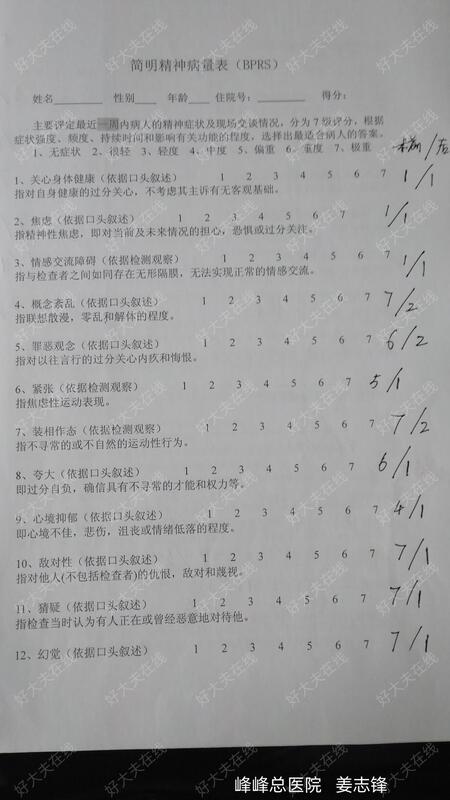 简明精神病量表（BPRS）
姓名________ 性别____ 年龄___ 住院号：________ 得分：
主要评定最近一周内病人的精神症状及现场交谈情况，分为7级评分，根据
症状强度、频度、持续时间和影响有关功能的程度，选择出最适合病人的答案。
1、无症状 2、很轻 3、轻度 4、中度 5、偏重 6、重度 7、极重 术前/后
1、关心身体健康（依据口头叙述） 1 2 3 4 5 6 7 1/1
指对自身健康的过分关心，不考虑其主诉有无客观基础。
2、焦虑（依据口头叙述） 1 2 3 4 5 6 7 1/1
指精神性焦虑，即对当前及未来情况的担心，恐惧或过分关注。
3、情感交流障碍（依据检测观察） 1 2 3 4 5 6 7 1/1
指与检查者之间如同存在无形隔膜，无法实现正常的情感交流。
4、概念紊乱（依据口头叙述） 1 2 3 4 5 6 7 7/2
指联想散漫，零乱和解体的程度。
5、罪恶观念（依据口头叙述） 1 2 3 4 5 6 7 6/2
指对以往言行的过分关心内疚和悔恨。
6、紧张（依据检测观察） 1 2 3 4 5 6 7 5/1
指焦虑性运动表现。
7、装相作态（依据检测观察） 1 2 3 4 5 6 7 7/2
指不寻常的或不自然的运动性行为。
8、夸大（依据口头叙述） 1 2 3 4 5 6 7 6/1
即过分自负，确信具有不寻常的才能和权力等。
9、心境抑郁（依据口头叙述） 1 2 3 4 5 6 7 4/1
即心境不佳，悲伤，沮丧或情绪低落的程度。
10、敌对性（依据口头叙述） 1 2 3 4 5 6 7 7/1
指对他人(不包括检查者)的仇恨，敌对和蔑视。
11、猜疑（依据口头叙述） 1 2 3 4 5 6 7 7/1
指检查当时认为有人正在或曾经恶意地对待他。
12、幻觉（依据口头叙述） 1 2 3 4 5 6 7 7/1
好大夫在线
峰峰总医院 姜志锋